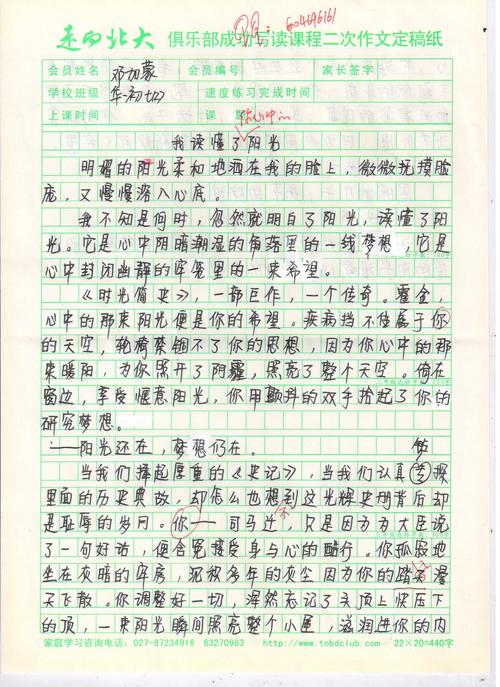 走向北大 俱乐部成功写读课程二次作文定稿纸
604696161
会员姓名 邓加蒙 会员编号 家长签字
学校班级 华初七(2) 速度练习完成时间
上课时间 课 题
你心中的
我读懂了阳光
明媚的阳光柔和地洒在我的脸上，微微抚摸脸
庞，又慢慢深入心底。
我不知是何时，忽然就明白了阳光，读懂了阳
光。它是心中阴暗潮湿的角落里的一线梦想，它是
心中封闭幽静的牢笼里的一束希望。
《时光简史》，一部巨作，一个传奇。霍金，
心中的那束阳光便是你的希望。疾病挡不住属于你
的天空，轮椅禁锢不了你的思想，因为你心中的那
束暖阳，为你照开了阴霾，照亮了整个天空。倚在
窗边，享受惬意阳光，你用颤抖的双手拾起了你的
研究梦想。
——阳光还在，梦想仍在。
当我们捧起厚重的《史记》，当我们认真 探
里面的历史典故，却怎么也想到这光辉史册背后却
不
是耻辱的岁月。你——司马迁，只是因为为大臣说
了一句好话，便含冤接受身与心的酷行。你孤寂地
坐在灰暗的牢房，沉积多年的灰尘因为你的踏 漫
天飞散。你调整好一切，浑然忘记了头顶上快压下
的顶，一束阳光瞬间照亮整个小屋，滋润进你的内
家庭学习咨询电话：027-87234916 63270983 http://www.tobdclub.com 22×20=440字